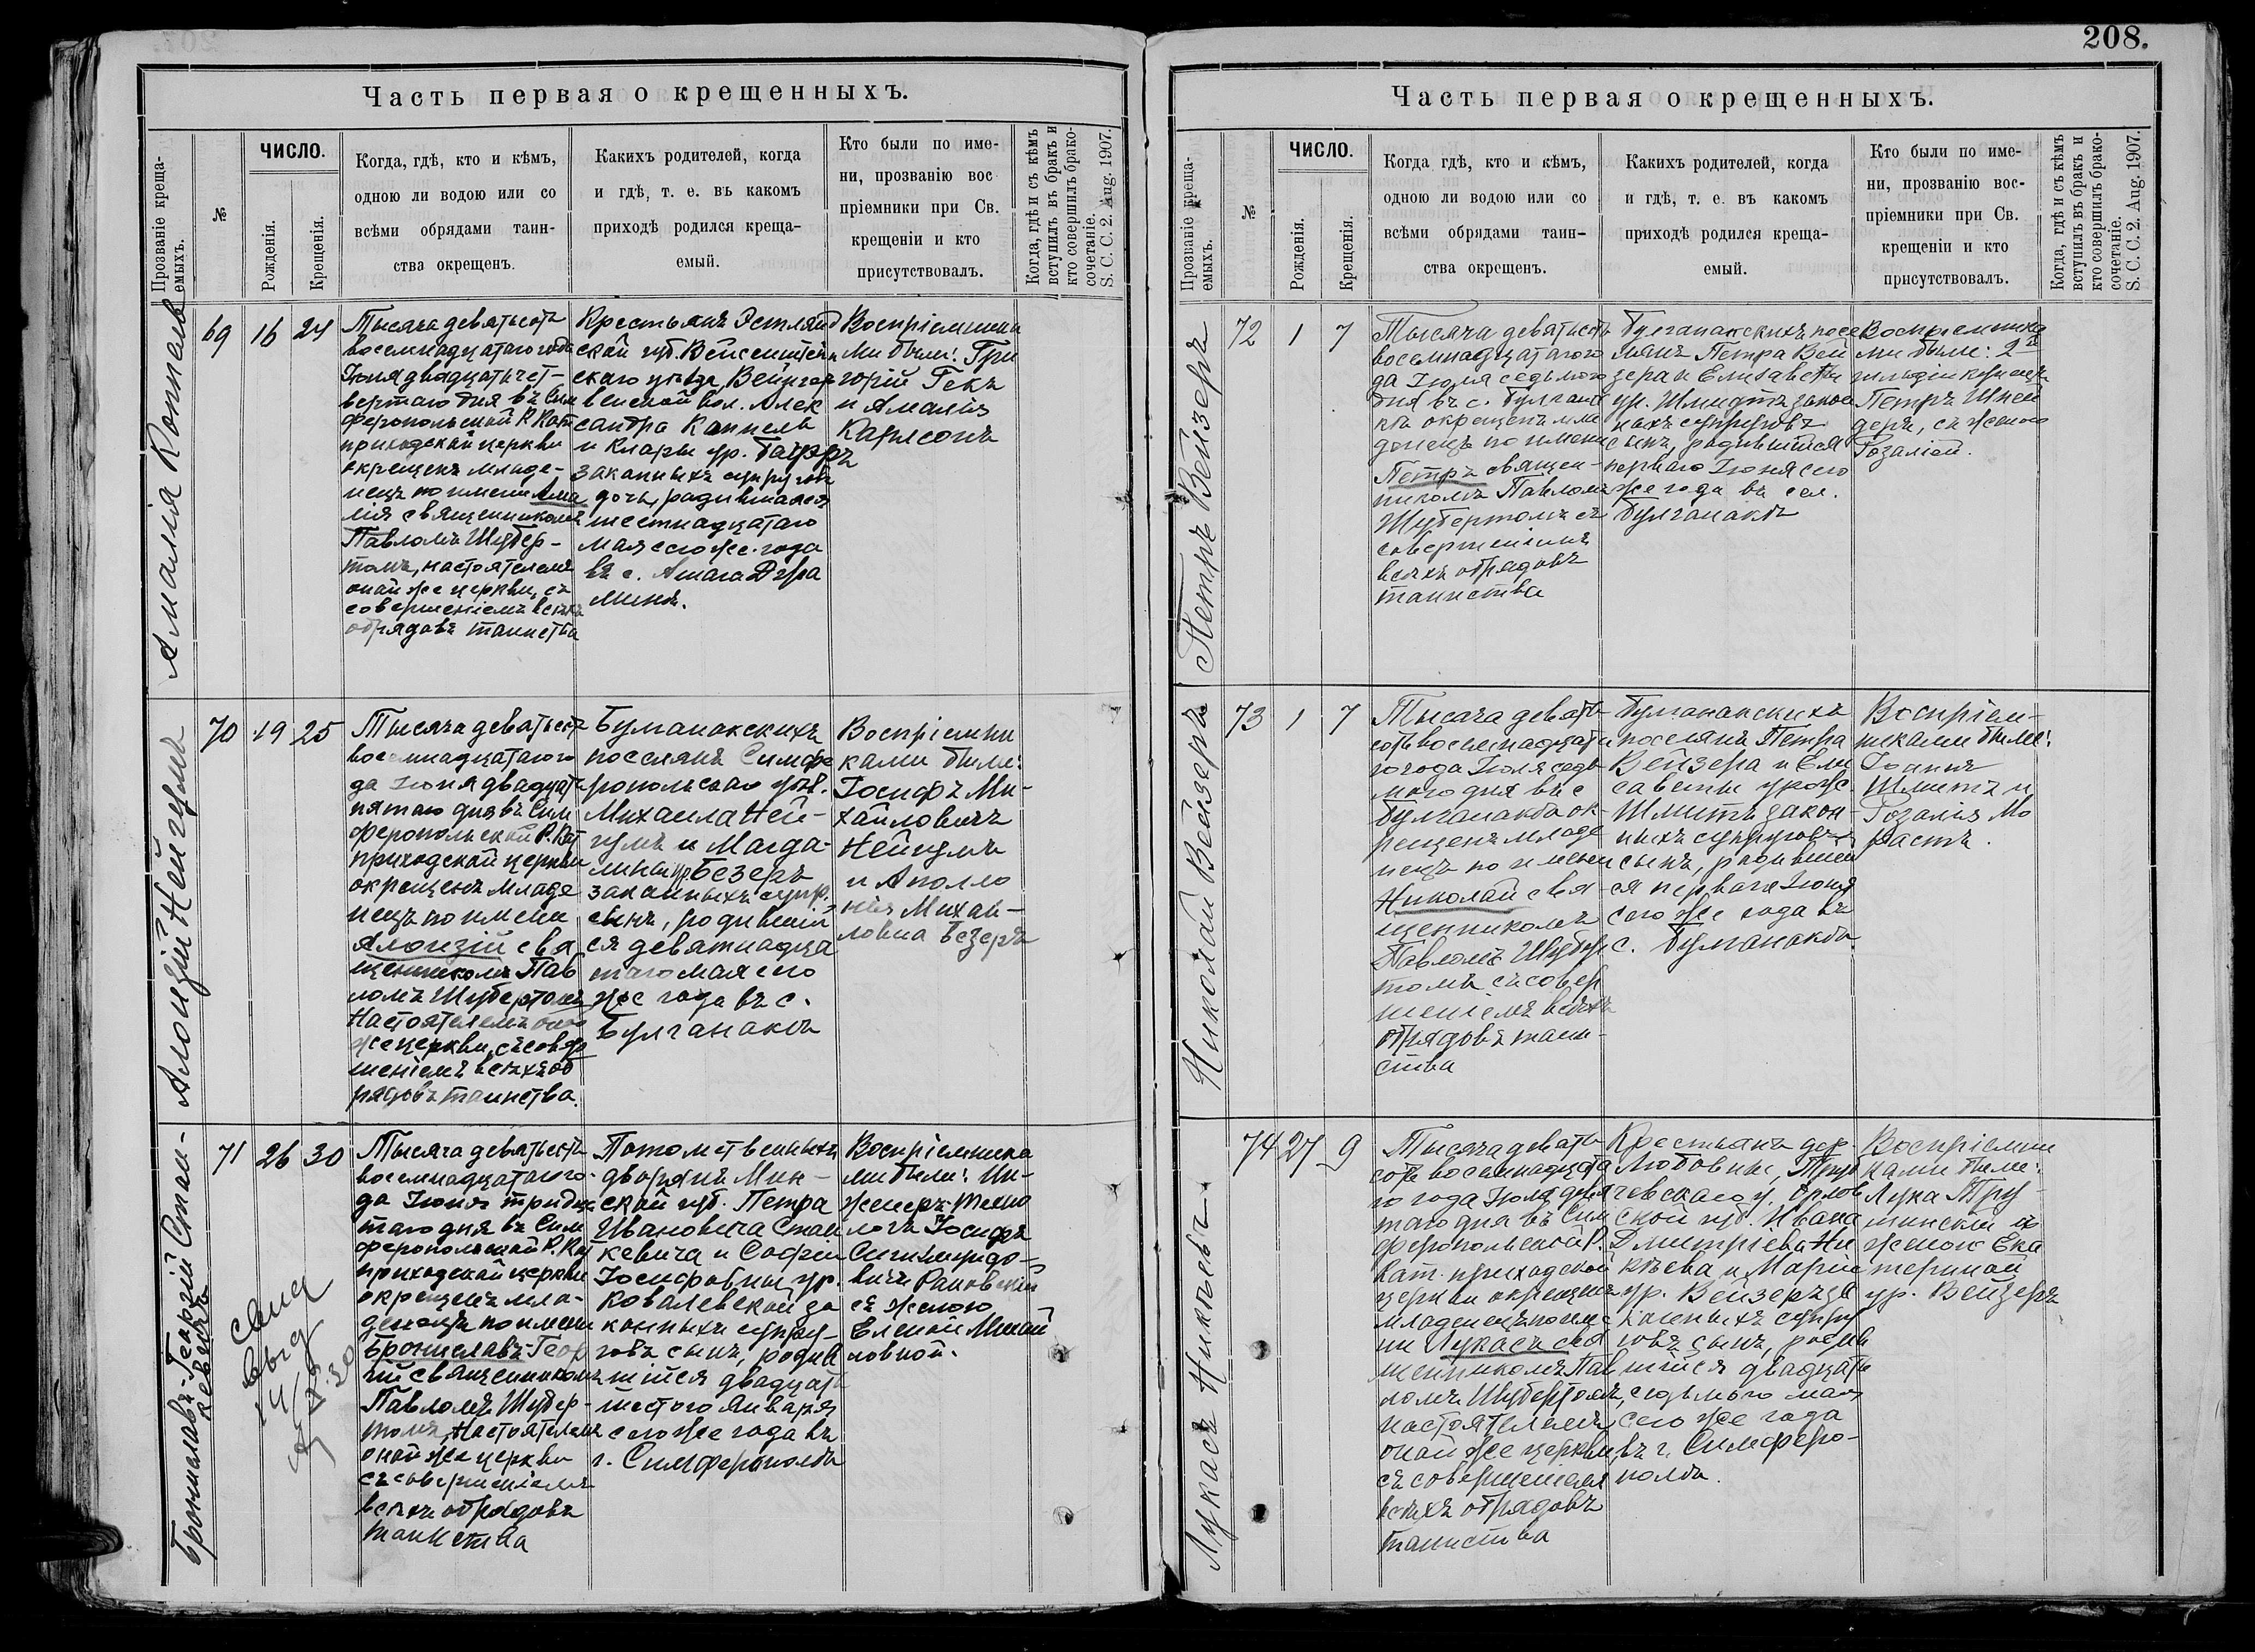 208.
Часть первая о крещенныхъ.
Прозваніе креща-
емыхъ.
№
ЧИСЛО.
Рожденія.
Крещенія.
Когда, гдѣ, кто и кѣмъ,
одною ли водою или со
всѣми обрядами таин-
ства окрещенъ.
Какихъ родителей, когда
и гдѣ, т. е. въ какомъ
приходѣ родился креща-
емый.
Кто были по име-
ни, прозванію вос
пріемники при Св.
крещеніи и кто
присутствовалъ.
Когда, гдѣ и съ кѣмъ
вступилъ въ бракъ и
кто совершилъ брако-
сочетаніе.
S. C. C. 2. Aug. 1907.
Амалія Коппель
69 16 24
Тысяча девятьсотъ
восемнадцатаго года
Іюня двадцать чет-
вертаго дня въ Сим
феропольской Р. Кат
приходской церкви
окрещенъ младе-
нецъ по имени Ама
лія священникомъ
Павломъ Шубер-
томъ, настоятелемъ
оной же церкви, съ
совершеніемъ всѣхъ
обрядовъ таинства
Крестьянъ Эстлянд
ской губ. Вейсенштейн
скаго уѣзда,
венской вол. Алек
сандра Коппель
и Клары ур. Бауэръ
законныхъ супруговъ
дочь, родившаяся
шестнадцатаго
мая сего же года
въ с.
Воспріемника
ми были: Гри
горій Гекъ
и Амалія
Карлсонъ
Алоизій Нейгумъ
70 19 25
Тысяча девятьсотъ
восемнадцатаго го
да Іюня двадцать
пятаго дня въ Сим
феропольской Р. Кат
приходской церкви
окрещенъ младе
нецъ по имени
Алоизій свя
щенникомъ Пав
ломъ Шубертомъ
Настоятелемъ оной
же церкви, съ совер
шеніемъ всѣхъ об
рядовъ таинства.
Булганакскихъ
поселянъ Симфе
ропольскаго уѣз.
Михаила Ней-
гумъ и Магда-
лины ур Безеръ
законныхъ супр.
сынъ, родившій
ся девятнадца
таго мая сего
же года въ с.
Булганакъ
Воспріемни
ками были:
Іосифъ Ми-
хайловичъ
Нейгумъ
и Аполло
нія Михай-
ловна Безеръ
Брониславъ-Георгій Стан-
кевичъ
71 26 30
Тысяча девятьсотъ
восемнадцатаго го-
да Іюня тридца
таго дня въ Сим
феропольской Р. Кат
приходской церкви
окрещенъ мла-
денецъ по имени
Брониславъ-Геор
гій священникомъ
Павломъ Шубер-
томъ, Настоятелемъ
оной же церкви
съ совершеніемъ
всѣхъ обрядовъ
таинства
Потомственныхъ
дворянъ Мин-
ской губ. Петра
Ивановича Стан
кевича и Софіи
Іосифовны ур.
Ковалевской за
конныхъ супру-
говъ сынъ, родив
шійся двадцать
шестого Января
сего же года въ
г. Симферополѣ
Воспріемника
ми были: Ин-
женеръ-техно
логъ Іосифъ
Сигизмундо-
вичъ Раковскій
съ женою
Еленой Михай
ловной.
Часть первая о крещенныхъ.
Прозваніе креща-
емыхъ.
№
ЧИСЛО.
Рожденія.
Крещенія.
Когда гдѣ, кто и кѣмъ,
одною ли водою или со
всѣми обрядами таин-
ства окрещенъ.
Какихъ родителей, когда
и гдѣ, т. е. въ какомъ
приходѣ родился креща-
емый.
Кто были по име-
ни, прозванію вос-
пріемники при Св.
крещеніи и кто
присутствовалъ.
Когда, гдѣ и съ кѣмъ
вступилъ въ бракъ и
кто совершилъ брако-
сочетаніе.
S. C. C. 2. Aug. 1907.
Петръ Вейзеръ
72 1 7
Тысяча девятьсотъ
восемнадцатаго го
да Іюля седьмого
дня въ с. Булгана
къ окрещенъ мла
денецъ по имени
Петръ священ-
никомъ Павломъ
Шубертомъ съ
совершеніемъ
всѣхъ обрядовъ
таинства
Булганакскихъ посе
лянъ Петра Вей
зера и Елисаветы
ур. Шмидтъ закон
ныхъ супруговъ
сынъ, родившійся
перваго Іюня сего
же года въ сел.
Булганакъ
Воспріемника
ми были: 2й
гильдіи купецъ
Петръ Шней
деръ, съ женою
Розаліей.
Николай Вейзеръ
73 1 7
Тысяча девять
сотъ восемнадцата
го года Іюля седь
мого дня въ с
Булганакъ ок-
рещенъ младе
нецъ по имени
Николай свя-
щенникомъ
Павломъ Шубер
томъ съ совер
шеніемъ всѣхъ
обрядовъ таин-
ства
Булганакскихъ
поселянъ Петра
Вейзера и Ели
саветы урож.
Шмитъ закон-
ныхъ супруговъ
сынъ, родивший
ся перваго Іюня
сего же года въ
с. Булганакъ
Воспріем-
никами были:
Іоаннъ
Шмитъ и
Розалія Мо
растъ.
Лукасъ Никѣевъ
74 27 9
Тысяча девять
сотъ восемнадцата
го года Іюля девя
таго дня въ Сим
феропольской Р.
Кат. приходской
церкви окрещенъ
младенецъ по име
ни Лукасъ свя
щенникомъ Пав
ломъ Шубертомъ,
настоятелемъ
оной же церкви,
съ совершеніемъ
всѣхъ обрядовъ
таинства
Крестьянъ дер.
Любовны, Труб
чевскаго у. Орлов
ской губ. Ивана
Дмитріева Ни
кѣева и Маріи
ур. Вейзеръ за
конныхъ супру
говъ сынъ, родив
шійся двадцать
седьмого мая
сего же года
въ г. Симферо-
полѣ.
Воспріемни
ками были:
Лука Тру
шинскій съ
женою Ека
териной
ур. Вейзеръ